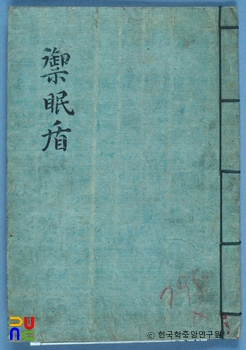 禦眠盾
© 한국학중앙연구원